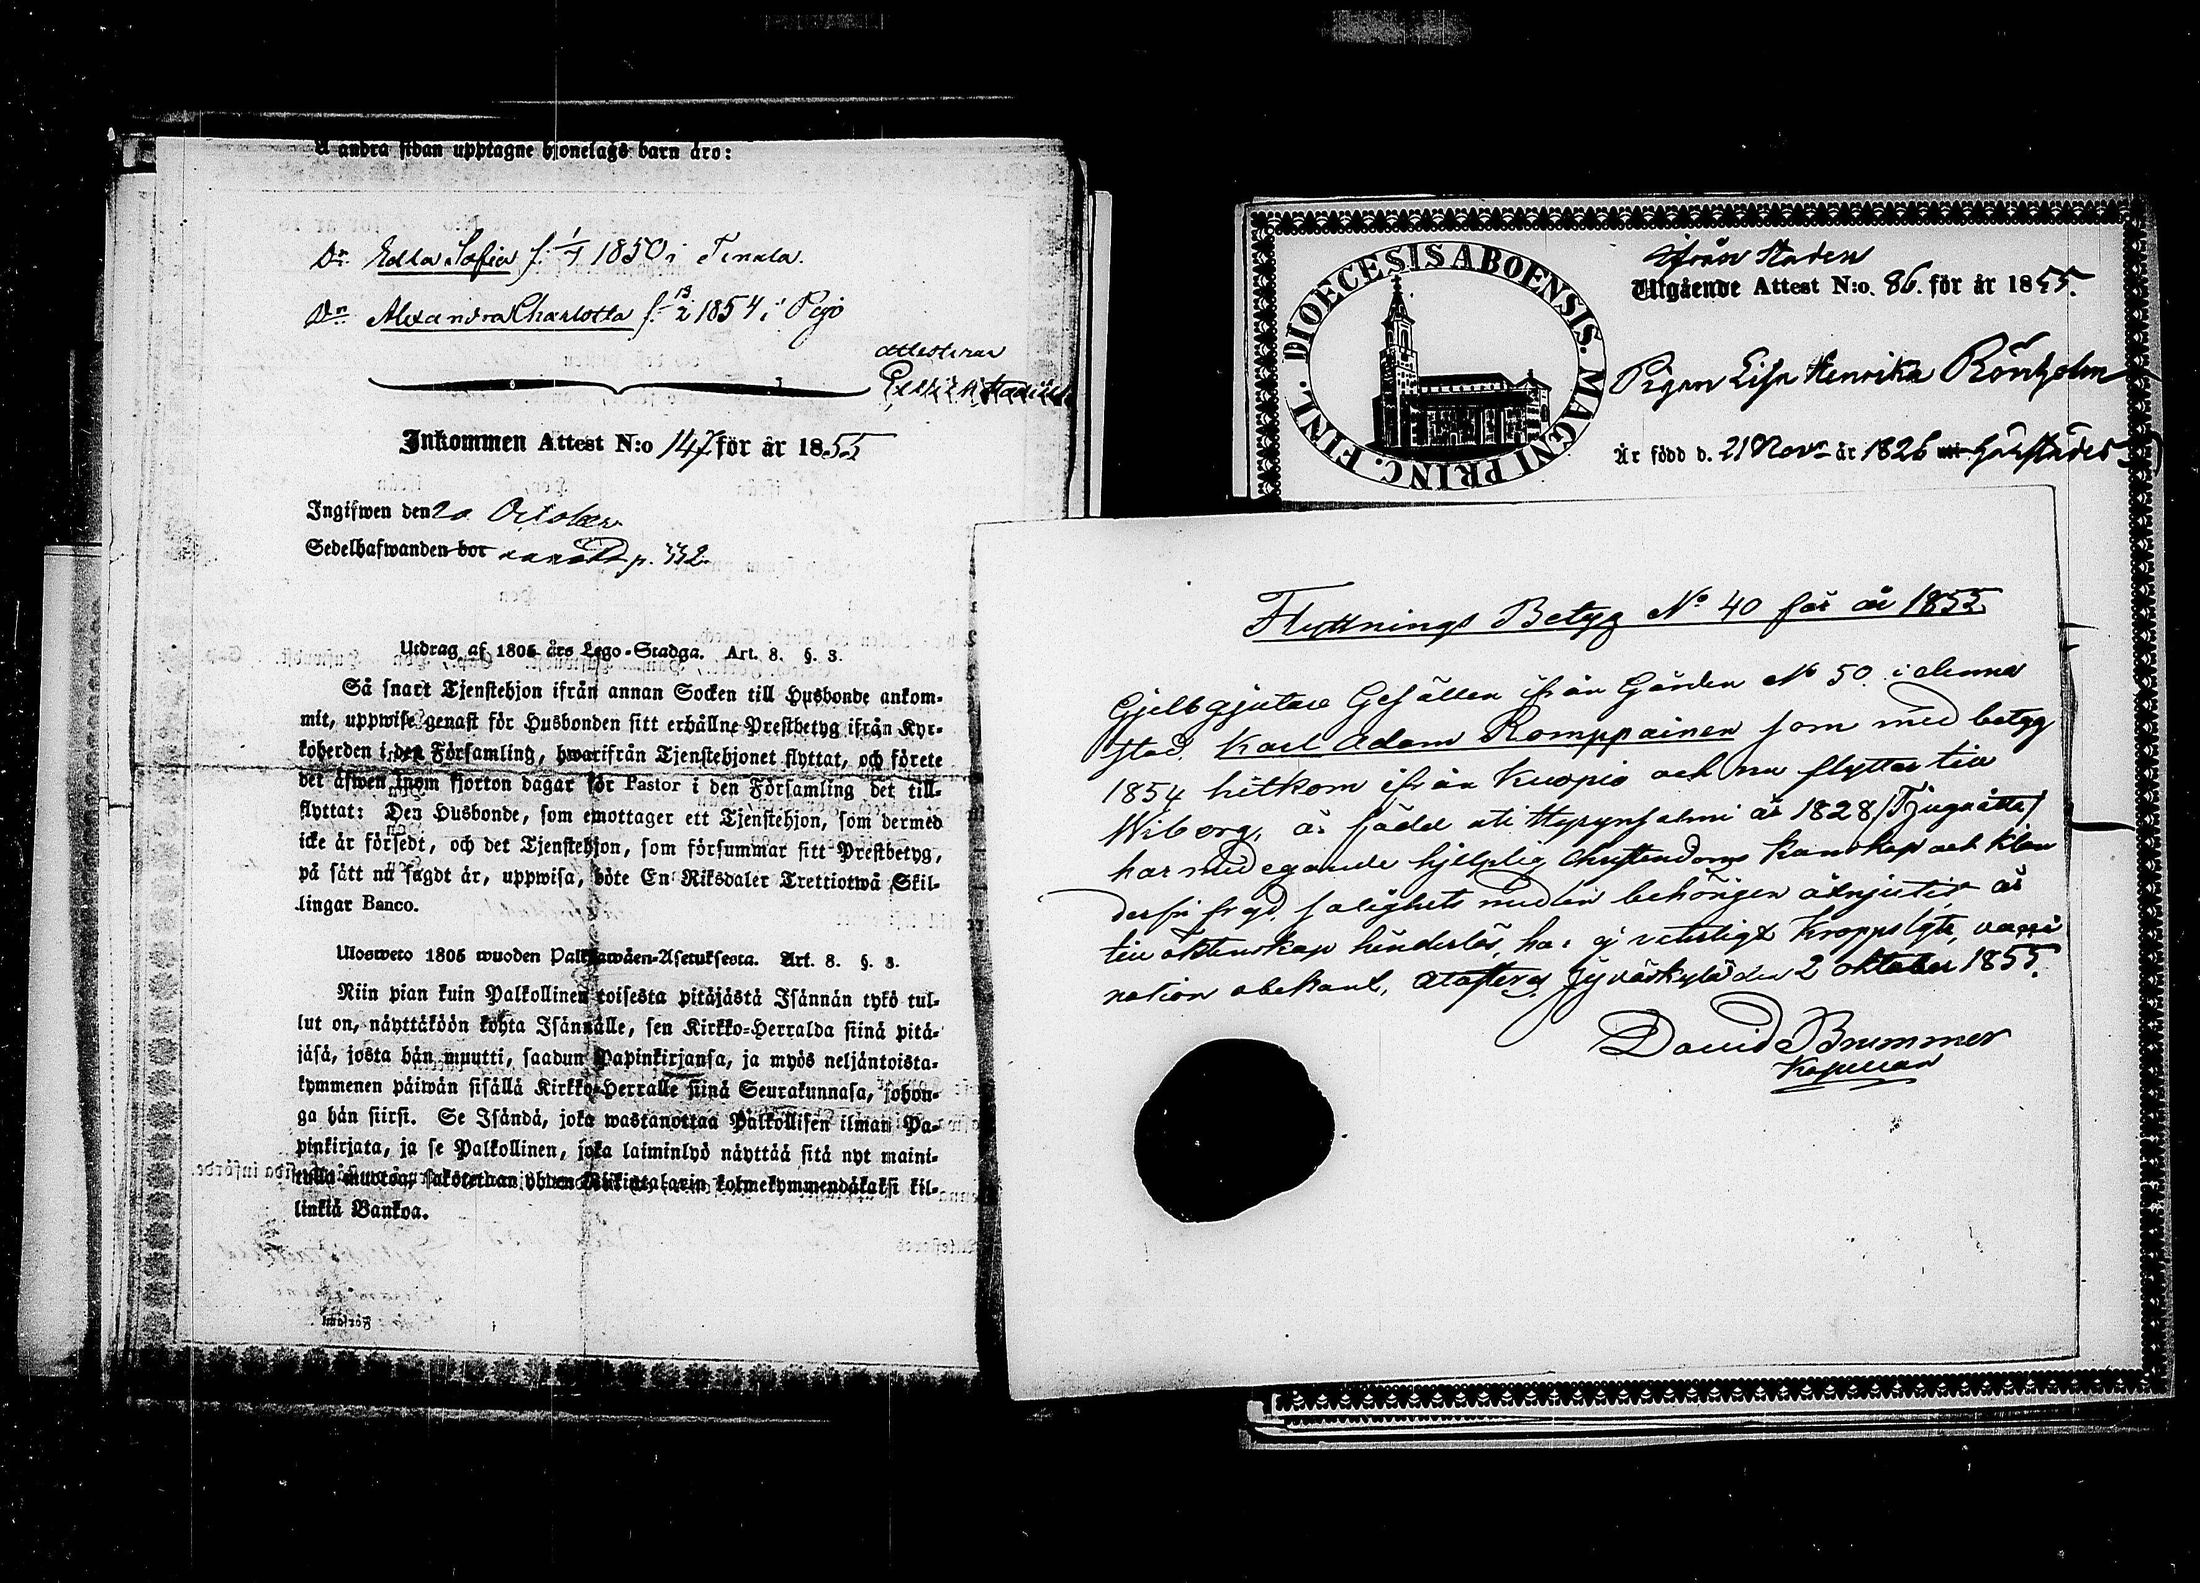 Å andra sidan upptagne hjonelags barn äro:
Dr Edla Sofia f. 1/7 1850 i Tenala.
Dr Alexandra Charlotta f. 13/2 1854 i Pojo
attesterar
Inkommen Attest N:o 147 för år 1855
Ingifwen den 20 October
Sedelhafwanden bor p. 332.
Utdrag af 1805 års Lego-Stadga. Art. 8. §. 3.
Så snart Tjenstehjon ifrån annan Socken till Husbonde ankom-
mit, uppwise genast för Husbonden sitt erhållne Prestbetyg ifrån Kyr-
koherden i den Församling, hwarifrån Tjenstehjonet flyttat, och förete
det äfwen inom fjorton dagar för Pastor i den Församling det till-
flyttat: Den Husbonde, som emottager ett Tjenstehjon, som dermed
icke är försedt, och det Tjenstehjon, som försummar sitt Prestbetyg,
på sätt nu sagdt är, uppwisa, böte En Riksdaler Trettiotwå Skil-
lingar Banco.
Ulosweto 1805 wuoden Palkkawäen-Asetuksesta. Art. 8. §. 3.
Niin pian kuin Palkollinen toisesta pitäjästä Isännän tykö tul-
lut on, näyttäköön kohta Isännälle, sen Kirkko-Herralda siinä pitä-
jäsä, josta hän muutti, saadun Papinkirjansa, ja myös neljäntoista-
kymmenen päiwän sisällä Kirkko-Herralle siinä Seurakunnasa, johon-
ga hän siirsi. Se Isändä, joka wastanottaa Palkollisen ilman Pa-
pinkirjata, ja se Palkollinen, joka laiminlyö näyttää sitä nyt maini-
tulla muotoa, sakotethan yhden Riikintalarin kolmekymmendäkaksi kil-
linkiä Bankoa.
DIOECESIS ABOENSIS. MAGNI PRINC. FINL.
ifrån staden
Utgående Attest N:o. 86. för år 1855.
Pigan Lisa Henrika Rönholm
Är född d. 21 Novr år 1826 uti
Flyttnings Betyg No 40 för år 1855
Gjelbgjutare Gesällen ifrån Gården No 50 i denna
stad Karl Adam Romppainen som med betyg
1854 hitkom ifrån Kuopio och nu flyttar till
Wiborg, är född uti Hyrynsalmi år 1828 /Tjuguåtta/
har med egande hjelplig Christendoms kunskap och klan
derfri frejd, salighets medlen behörigen åtnjutit, är
till äktenskap hinderlös, har ej veterligt kroppslyte, vacci
nation obekant, attesterar Jyväskylä den 2 oktober 1855.
David Brummer
Kapellan